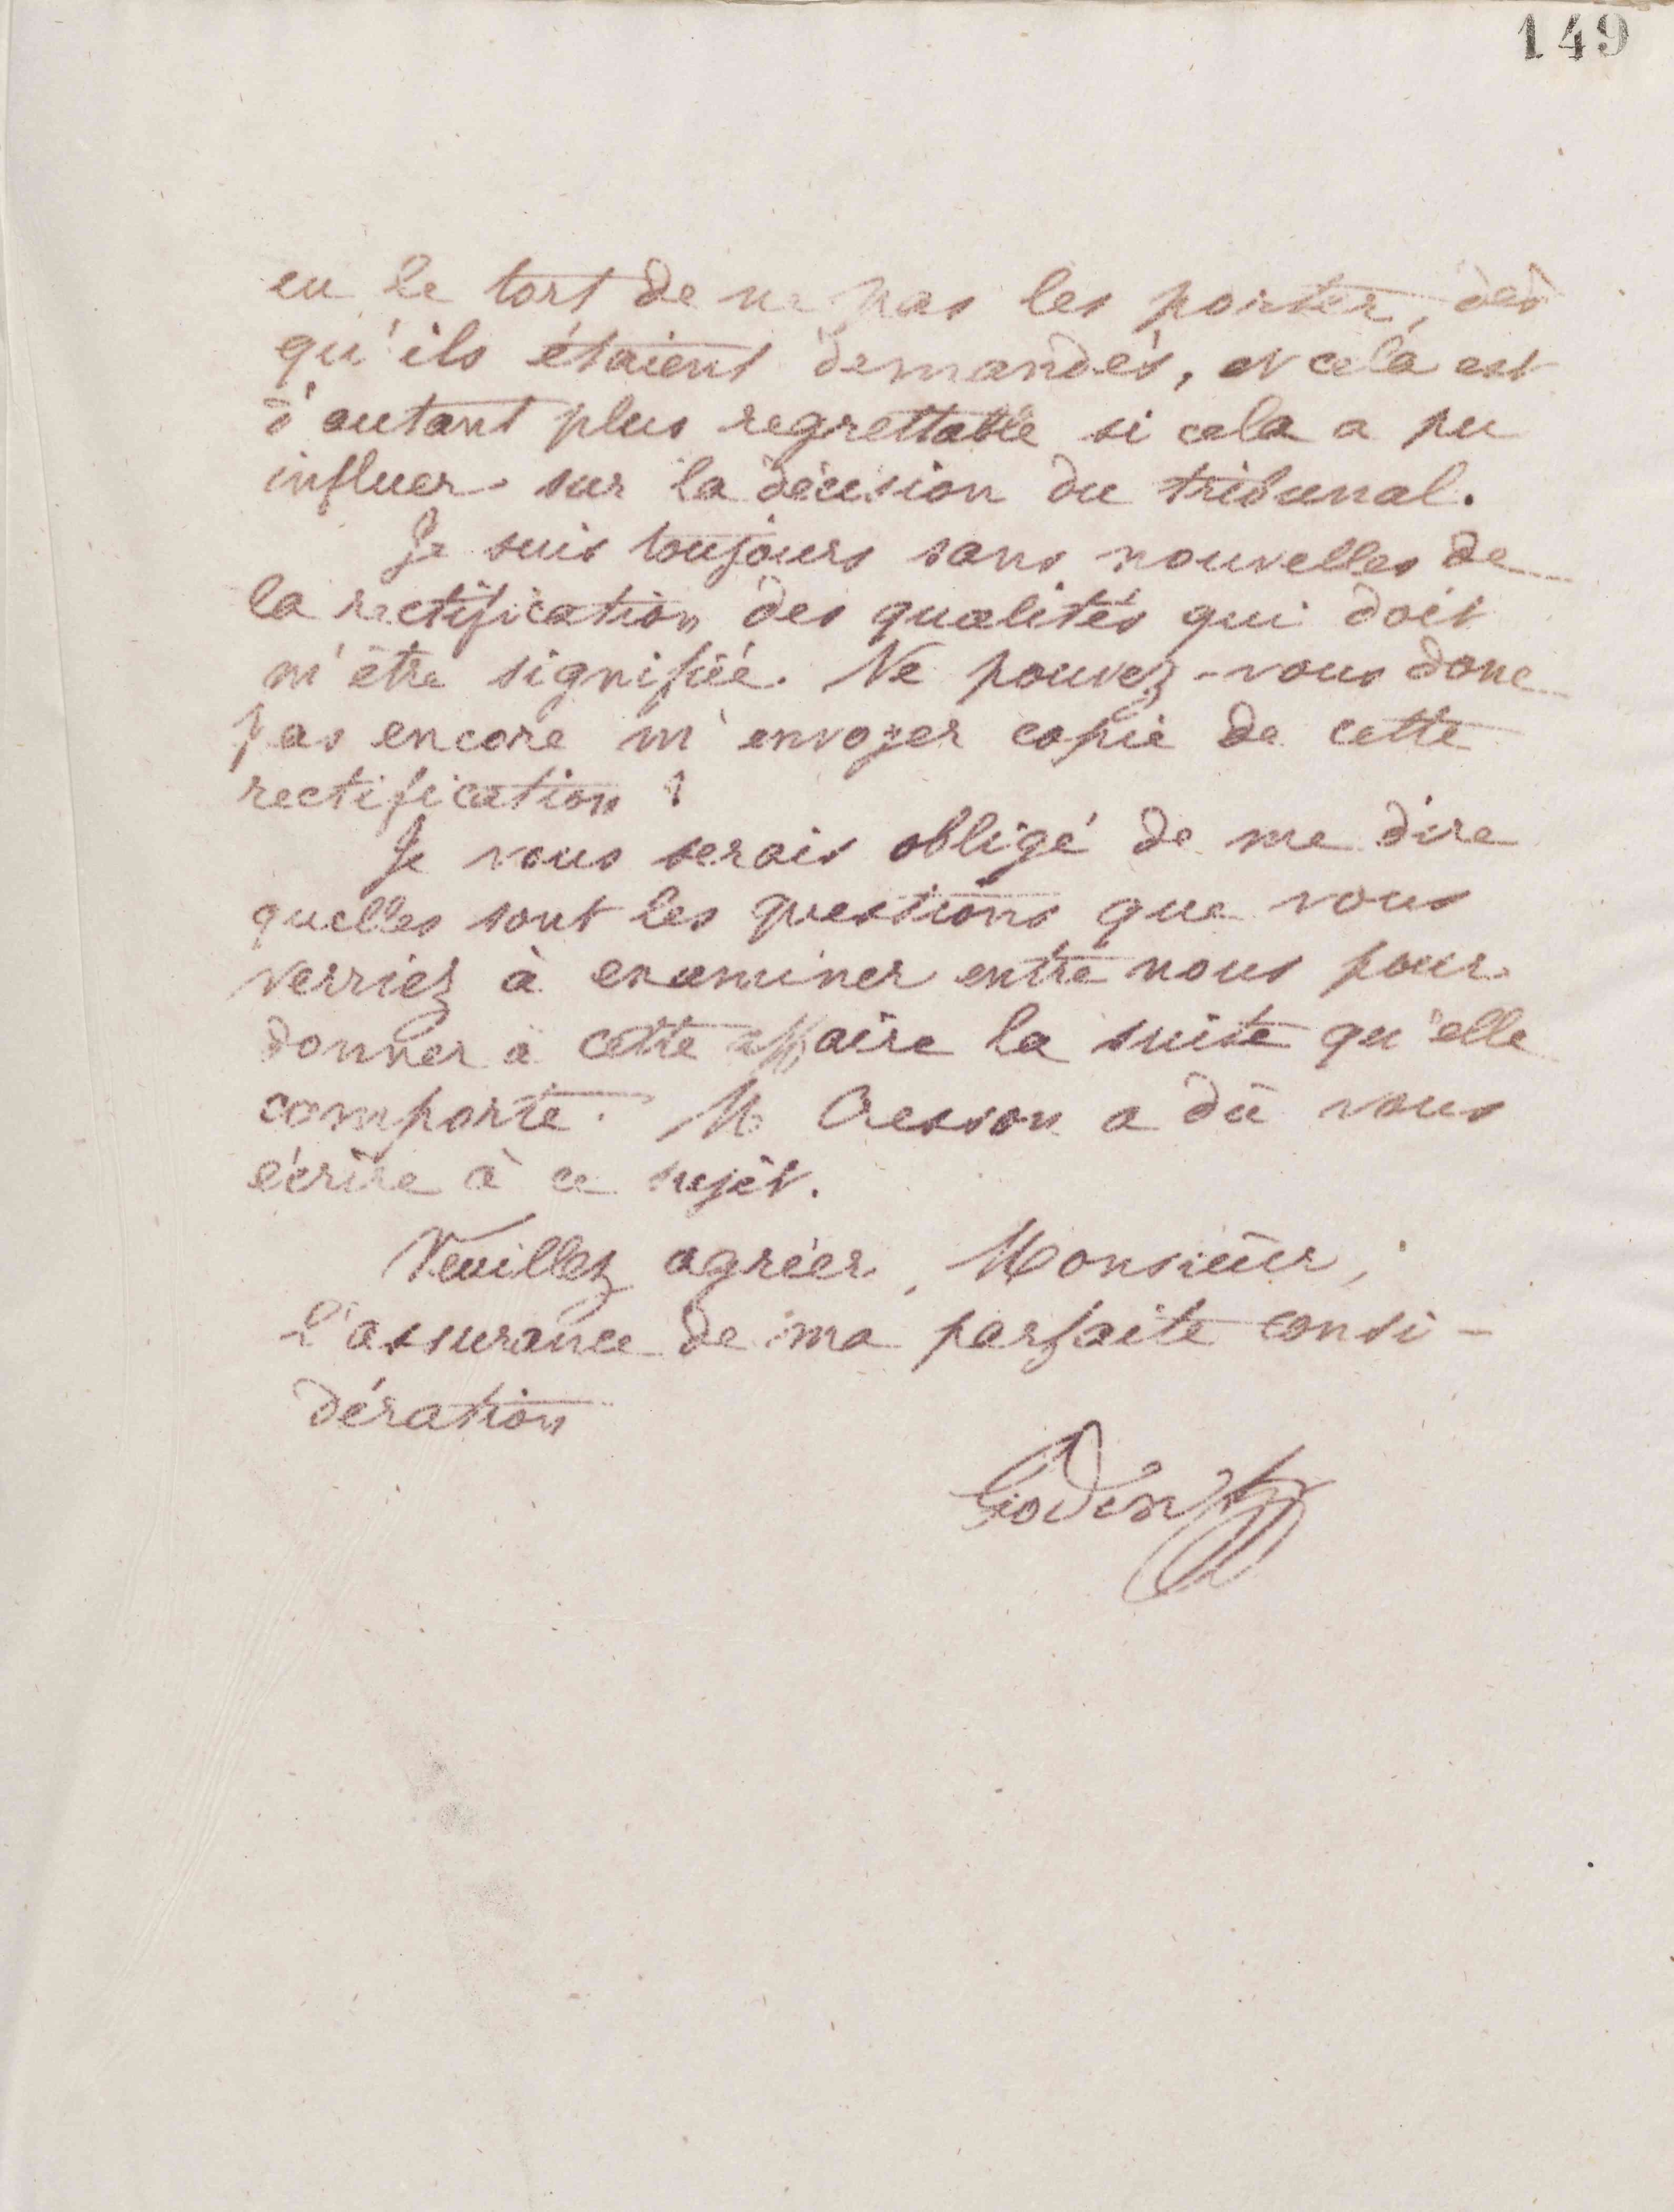 149
eu le tort de ne pas les porter, dès
qu'ils étaient demandés, et cela est
d'autant plus regrettable si cela a pu
influer sur la décision du tribunal.
Je suis toujours sans nouvelles de
la rectification des qualités qui doit
m'être signifiée. Ne pouvez-vous donc
pas encore m'envoyer copie de cette
rectification ?
Je vous serais obligé de me dire
quelles sont les questions que vous
verriez à examiner entre nous pour
donner à cette affaire la suite qu'elle
comporte. M Cresson a dû vous
écrire à ce sujet.
Veuillez agréer, Monsieur,
l'assurance de ma parfaite consi-
dération
Godin